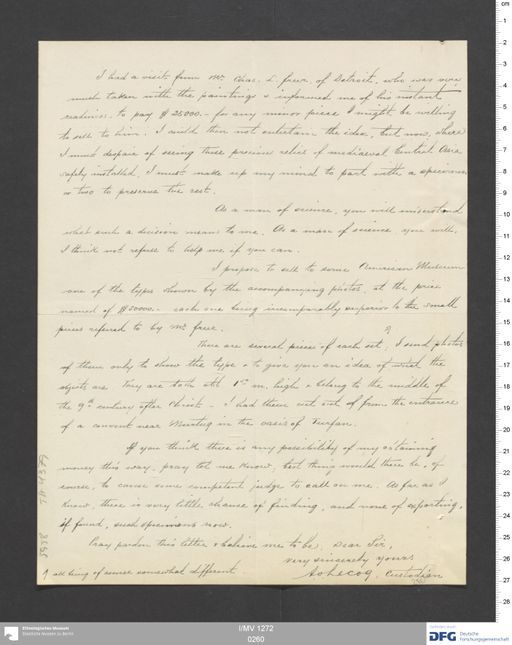 I had a visit from Mr. Chas. L. Freer, of Detroit, who was very
much taken with the paintings & informed me of his instant
readiness to pay $ 25000.- for any minor piece I might be willing
to sell to him. I could then not entertain the idea, but now, where
I must despair of seeing these precious relics of mediaeval Central Asia
safely installed, I must make up my mind to part with a specimen
or two to preserve the rest.
As a man of science, you will understand
what such a decision means to me. As a man of science you will,
I think not refuse to help me if you can.
I propose to sell to some American Museum
one of the types shown by the accompanying photos, at the price
named of $ 50000.- each one being incomparably superior to the small
pieces refered to by Mr. Freer.
There are several pieces of each set, I send photos
of them only to show the type & to give you an idea of what the
objects are. They are both abt 1 m. high & belong to the middle of
the 9th century after Christ - I had them cut out of from the entrance
of a convent near Murtuq in the oasis of Turfan.
If you think there is any possibility of my obtaining
money this way, pray let me know, but thing would there be, of
course, to cause some competent judge to call on me. As far as I
know, there is very little chance of finding, and none of exporting,
if found, such specimens now.
Pray pardon this letter & believe me to be, Dear Sir,
very sincerely yours
A v LeCoq, Custodian
all being of course somewhat different
TA 4379
5978
Ethnologisches Museum
Staatliche Museen zu Berlin
I/MV 1272
0260
Gefördert durch
DFG Deutsche
Forschungsgemeinschaft
cm
0
1
2
3
4
5
6
7
8
9
10
11
12
13
14
15
16
17
18
19
20
21
22
23
24
25
26
27
28